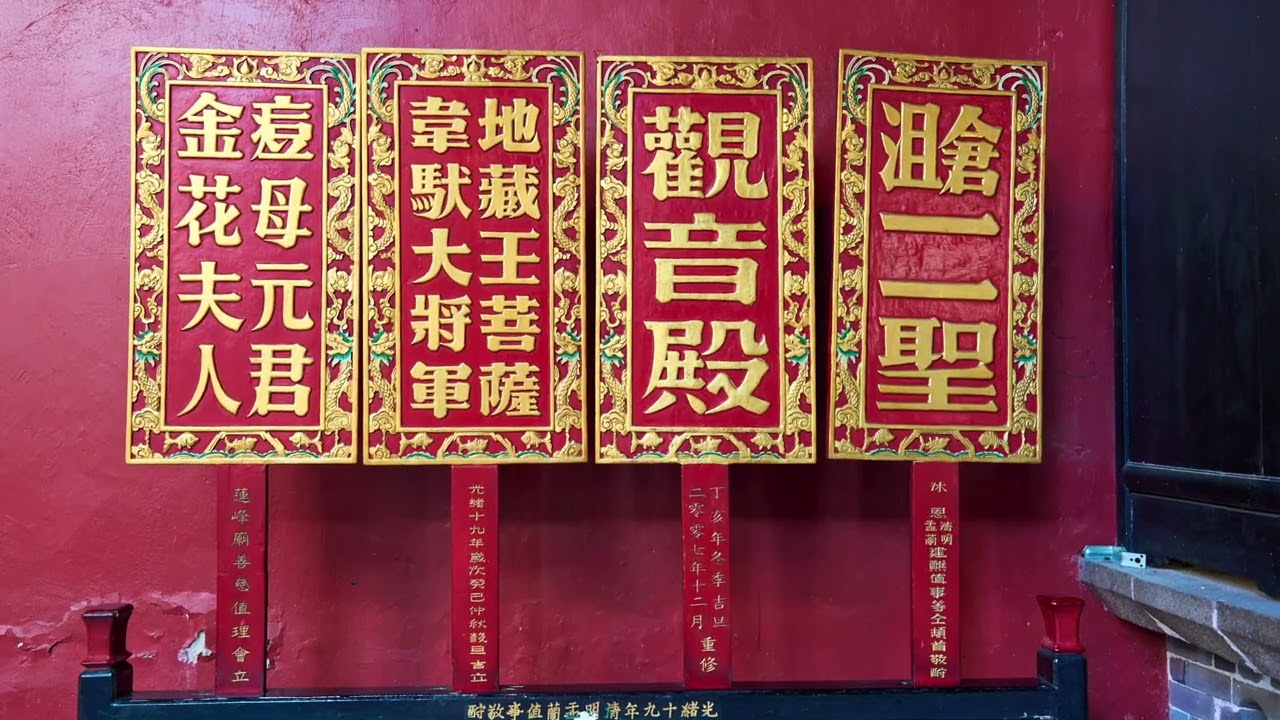 倉沮二聖
觀音殿
地藏王菩薩
韋馱大將軍
痘母元君
金花夫人
沐恩清明盂蘭建醮值事等仝頓首敬酧
丁亥年冬季吉旦
二零零七年十二月 重修
光緒十九年歲次癸巳仲秋穀旦吉立
蓮峰廟善慈值理會立
光緒十九年清明盂蘭值事敬酧